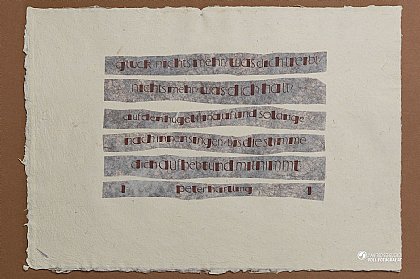 glück: nichts mehr/was dich treibt
nichts mehr/was dich hält
auf den hügel hinauf und solange
nach innen singen/bis die stimme
dich aufhebt und mitnimmt
peter härtling